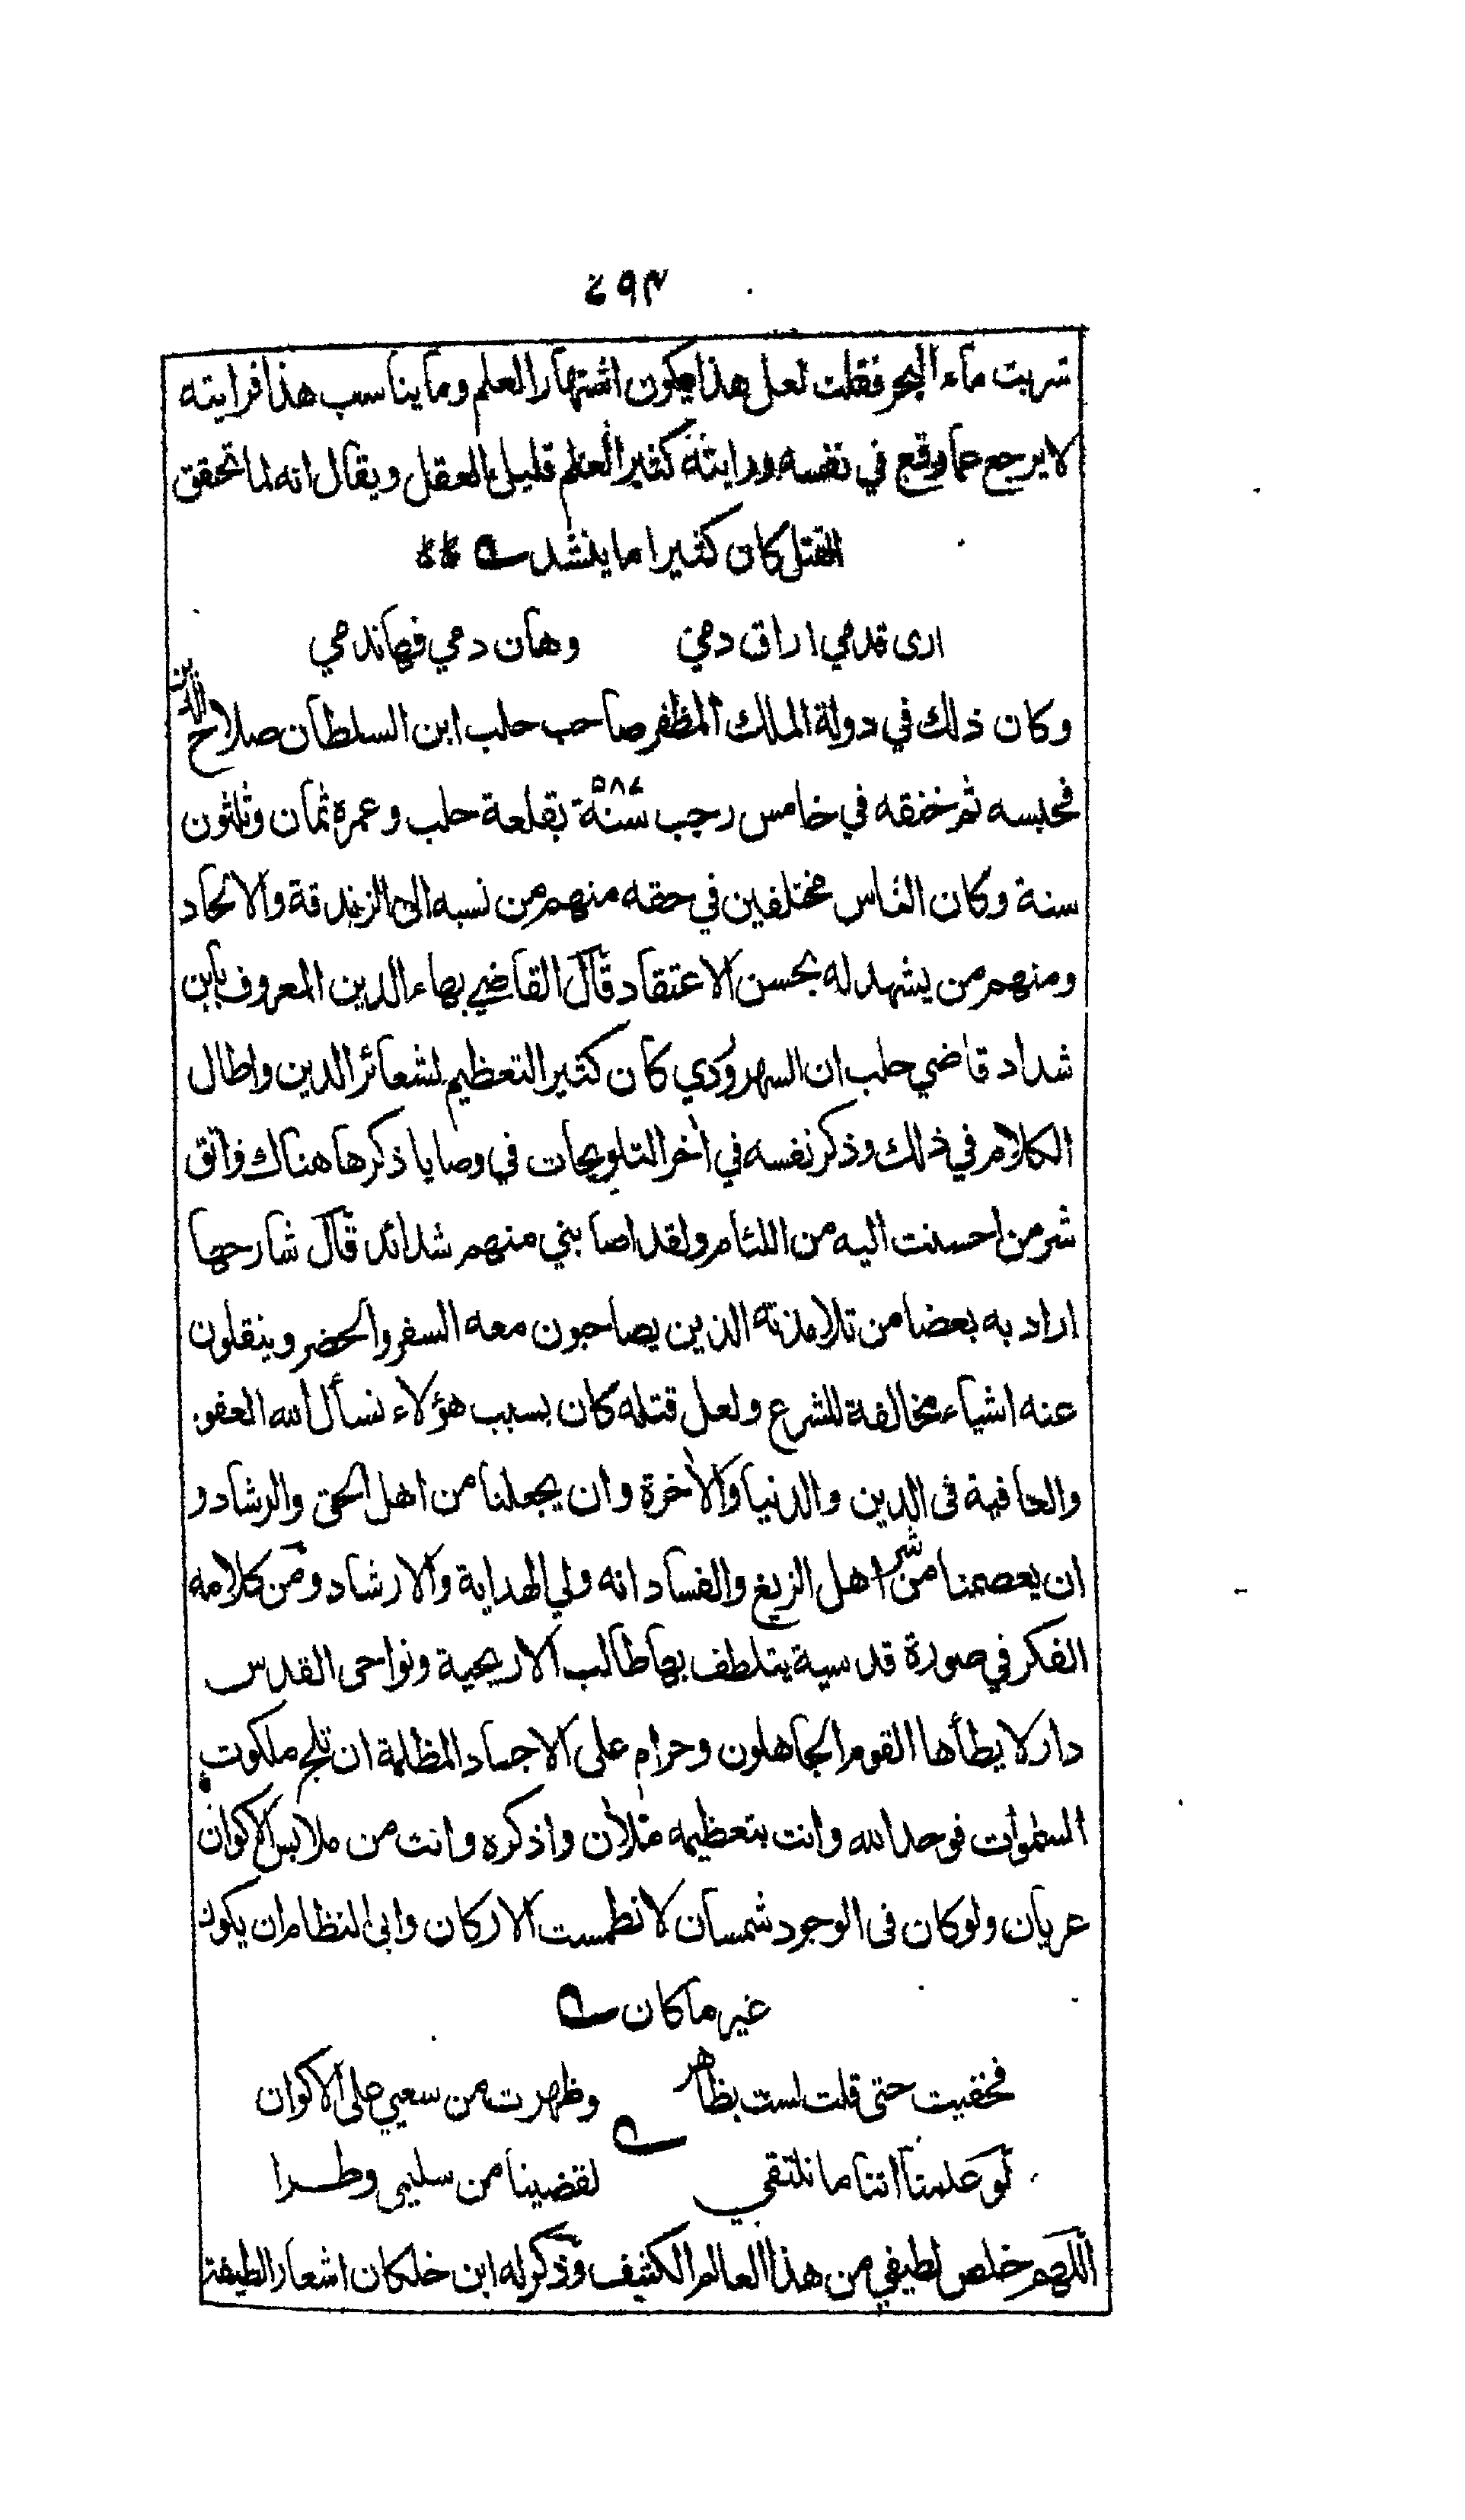 ٤٩٣
شربت ماء البحر فقلت لعل هذا يكون اشتهار العلم وما يناسب هذا فرايته
لا يرجع عما وقع في نفسه ورايته كثير العلم قليل العقل ويقال انه لما تحقق
القتل كان كثيرا ما ينشد
ارى قدمي اراق دمي وهان دمي فها ندمي
وكان ذلك في دولة الملك المظفر صاحب حلب ابن السلطان صلاح الدين
فحبسه ثم خنقه في خامس رجب سنة ٥٨٤ بقلعة حلب وعمره ثمان وثلثون
سنة وكان الناس مختلفين في حقه منهم من نسبه الى الزندقة والالحاد
ومنهم من يشهد له بحسن الاعتقاد قال القاضي بهاء الدين المعروف بابن
شداد قاضي حلب ان السهروردي كان كثير التعظيم لشعائر الدين واطال
الكلام في ذلك وذكر نفسه في آخر التلويحات في وصايا ذكرها هناك واتق
شر من احسنت اليه من اللئام ولقد اصابني منهم شدائد قال شارحها
اراد به بعضا من تلامذته الذين يصاحبون معه السفر والحضر وينقلون
عنه اشياء مخالفة للشرع ولعل قتله كان بسبب هؤلاء نسأل الله العفو
والعافية في الدين والدنيا والآخرة وان يجعلنا من اهل الحق والرشاد و
ان يعصمنا من شر اهل الزيغ والفساد انه ولي الهداية والارشاد ومن كلامه
الفكر في صورة قدسية يتلطف بها طالب الاريحية ونواحى القدس
دار لا يطأها القوم الجاهلون وحرام على الاجساد المظلمة ان تلج ملكوت
السموات فوحد الله وانت بتعظيمه ملآن واذكره وانت من ملابس الاكوان
عريان ولو كان فى الوجود شمسان لانطمست الاركان وابى النظام ان يكون
غير ما كان
فخفيت حتى قلت لست بظاهر وظهرت من سعيي على الاكوان
لو علمنا اننا ما نلتقي لقضينا من سليمى وطرا
اللهم خلص لطيفي من هذا العالم الكثيف وذكر له ابن خلكان اشعار الطيفة